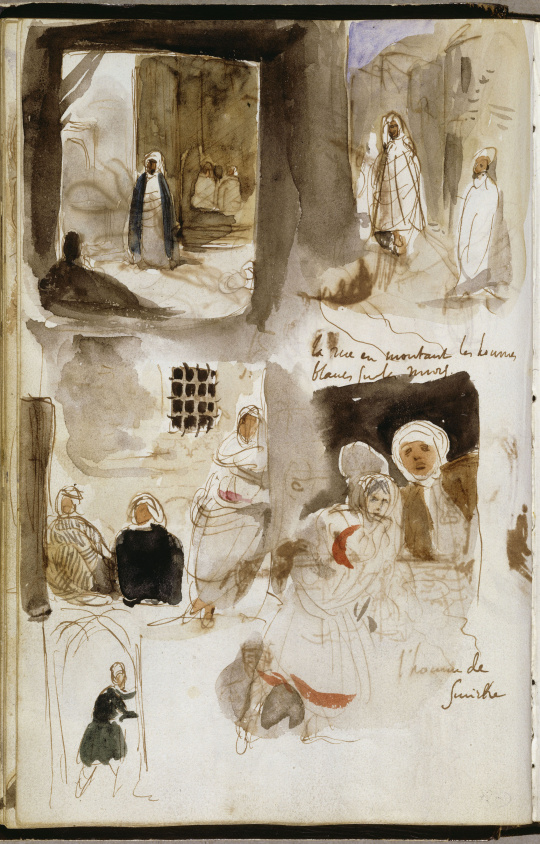 la rue en montant les hommes
blancs sur le mur.
l'homme de